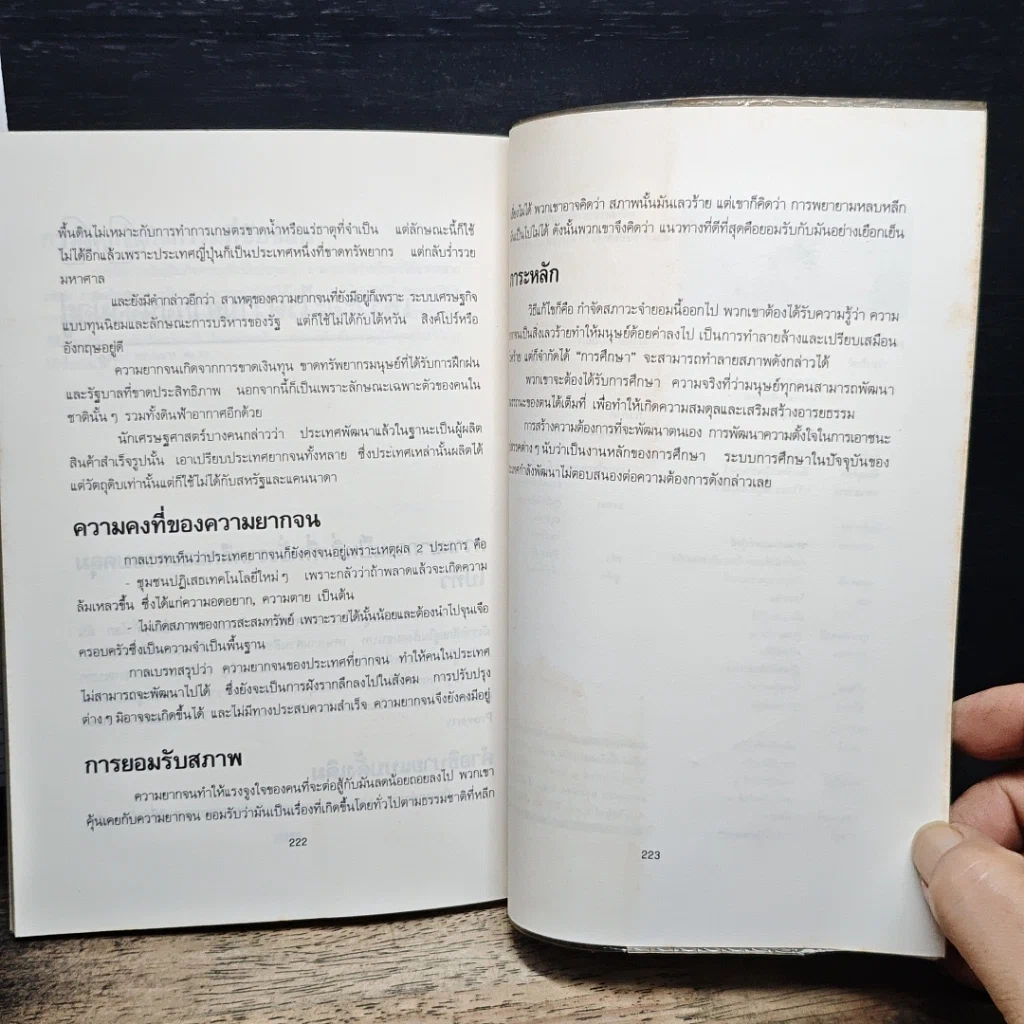 พื้นดินไม่เหมาะกับการทำการเกษตรขาดน้ำหรือแร่ธาตุที่จำเป็น แต่ลักษณะนี้ก็ใช้
ไม่ได้อีกแล้วเพราะประเทศญี่ปุ่นก็เป็นประเทศหนึ่งที่ขาดทรัพยากร แต่กลับร่ำรวย
มหาศาล
และยังมีคำกล่าวอีกว่า สาเหตุของความยากจนที่ยังมีอยู่ก็เพราะ ระบบเศรษฐกิจ
แบบทุนนิยมและลักษณะการบริหารของรัฐ แต่ก็ใช้ไม่ได้กับไต้หวัน สิงค์โปร์หรือ
อังกฤษอยู่ดี
ความยากจนเกิดจากการขาดเงินทุน ขาดทรัพยากรมนุษย์ที่ได้รับการฝึกฝน
และรัฐบาลที่ขาดประสิทธิภาพ นอกจากนี้ก็เป็นเพราะลักษณะเฉพาะตัวของคนใน
ชาตินั้น ๆ รวมทั้งดินฟ้าอากาศอีกด้วย
นักเศรษฐศาสตร์บางคนกล่าวว่า ประเทศพัฒนาแล้วในฐานะเป็นผู้ผลิต
สินค้าสำเร็จรูปนั้น เอาเปรียบประเทศยากจนทั้งหลาย ซึ่งประเทศเหล่านั้นผลิตได้
แต่วัตถุดิบเท่านั้นแต่ก็ใช้ไม่ได้กับสหรัฐและแคนนาดา
ความคงที่ของความยากจน
กาลเบรทเห็นว่าประเทศยากจนก็ยังคงจนอยู่เพราะเหตุผล 2 ประการ คือ
- ชุมชนปฏิเสธเทคโนโลยีใหม่ ๆ เพราะกลัวว่าถ้าพลาดแล้วจะเกิดความ
ล้มเหลวขึ้น ซึ่งได้แก่ความอดอยาก, ความตาย เป็นต้น
- ไม่เกิดสภาพของการสะสมทรัพย์ เพราะรายได้นั้นน้อยและต้องนำไปจุนเจือ
ครอบครัวซึ่งเป็นความจำเป็นพื้นฐาน
กาลเบรทสรุปว่า ความยากจนของประเทศที่ยากจน ทำให้คนในประเทศ
ไม่สามารถจะพัฒนาไปได้ ซึ่งยังจะเป็นการฝังรากลึกลงไปในสังคม การปรับปรุง
ต่าง ๆ มิอาจจะเกิดขึ้นได้ และไม่มีทางประสบความสำเร็จ ความยากจนจึงยังคงมีอยู่
การยอมรับสภาพ
ความยากจนทำให้แรงจูงใจของคนที่จะต่อสู้กับมันลดน้อยถอยลงไป พวกเขา
คุ้นเคยกับความยากจน ยอมรับว่ามันเป็นเรื่องที่เกิดขึ้นโดยทั่วไปตามธรรมชาติที่หลีก
222
เลี่ยงไม่ได้ พวกเขาอาจคิดว่า สภาพนั้นมันเลวร้าย แต่เขาก็คิดว่า การพยายามหลบหลีก
มันเป็นไปไม่ได้ ดังนั้นพวกเขาจึงคิดว่า แนวทางที่ดีที่สุดคือยอมรับกับมันอย่างเยือกเย็น
ภาระหลัก
วิธีแก้ไขก็คือ กำจัดสภาวะจำยอมนี้ออกไป พวกเขาต้องได้รับความรู้ว่า ความ
ยากจนเป็นสิ่งเลวร้ายทำให้มนุษย์ด้อยค่าลงไป เป็นการทำลายล้างและเปรียบเสมือน
แต่ก็จำกัดได้ “การศึกษา” จะสามารถทำลายสภาพดังกล่าวได้
พวกเขาจะต้องได้รับการศึกษา ความจริงที่ว่ามนุษย์ทุกคนสามารถพัฒนา
ของตนได้เต็มที่ เพื่อทำให้เกิดความสมดุลและเสริมสร้างอารยธรรม
การสร้างความต้องการที่จะพัฒนาตนเอง การพัฒนาความตั้งใจในการเอาชนะ
ต่าง ๆ นับว่าเป็นงานหลักของการศึกษา ระบบการศึกษาในปัจจุบันของ
กำลังพัฒนาไม่ตอบสนองต่อความต้องการดังกล่าวเลย
223